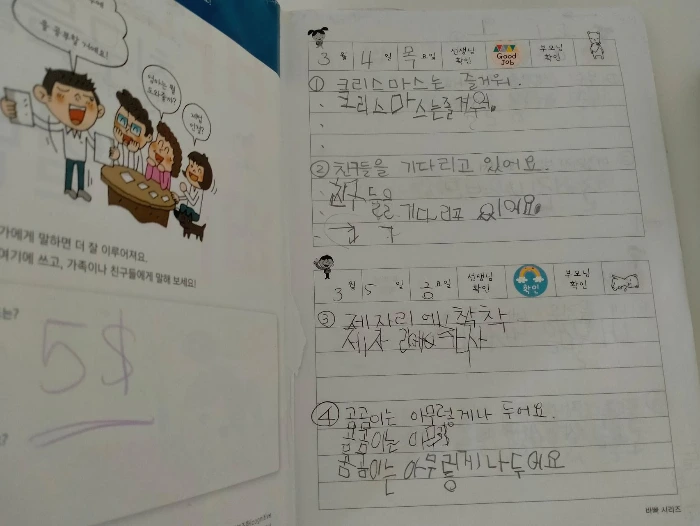 좀 공부할 거예요!
엄마는 뭘
도와줄까?
가에게 말하면 더 잘 이루어져요.
여기에 쓰고, 가족이나 친구들에게 말해 보세요!
는?
5$
?
3월 4일 목요일 선생님 확인 Good Job 부모님 확인
① 크리스마스는 즐거워.
크리스마스는즐거워.
② 친구들을 기다리고 있어요.
친구들을 기다리고 있어요.
친구
3월 5일 금요일 선생님 확인 확인 부모님 확인
③ 제자리에 착착
④ 곰곰이는 아무렇게나 두어요.
곰곰이는 아무렇
곰곰이는 아무렇게나두어요
바빠 시리즈